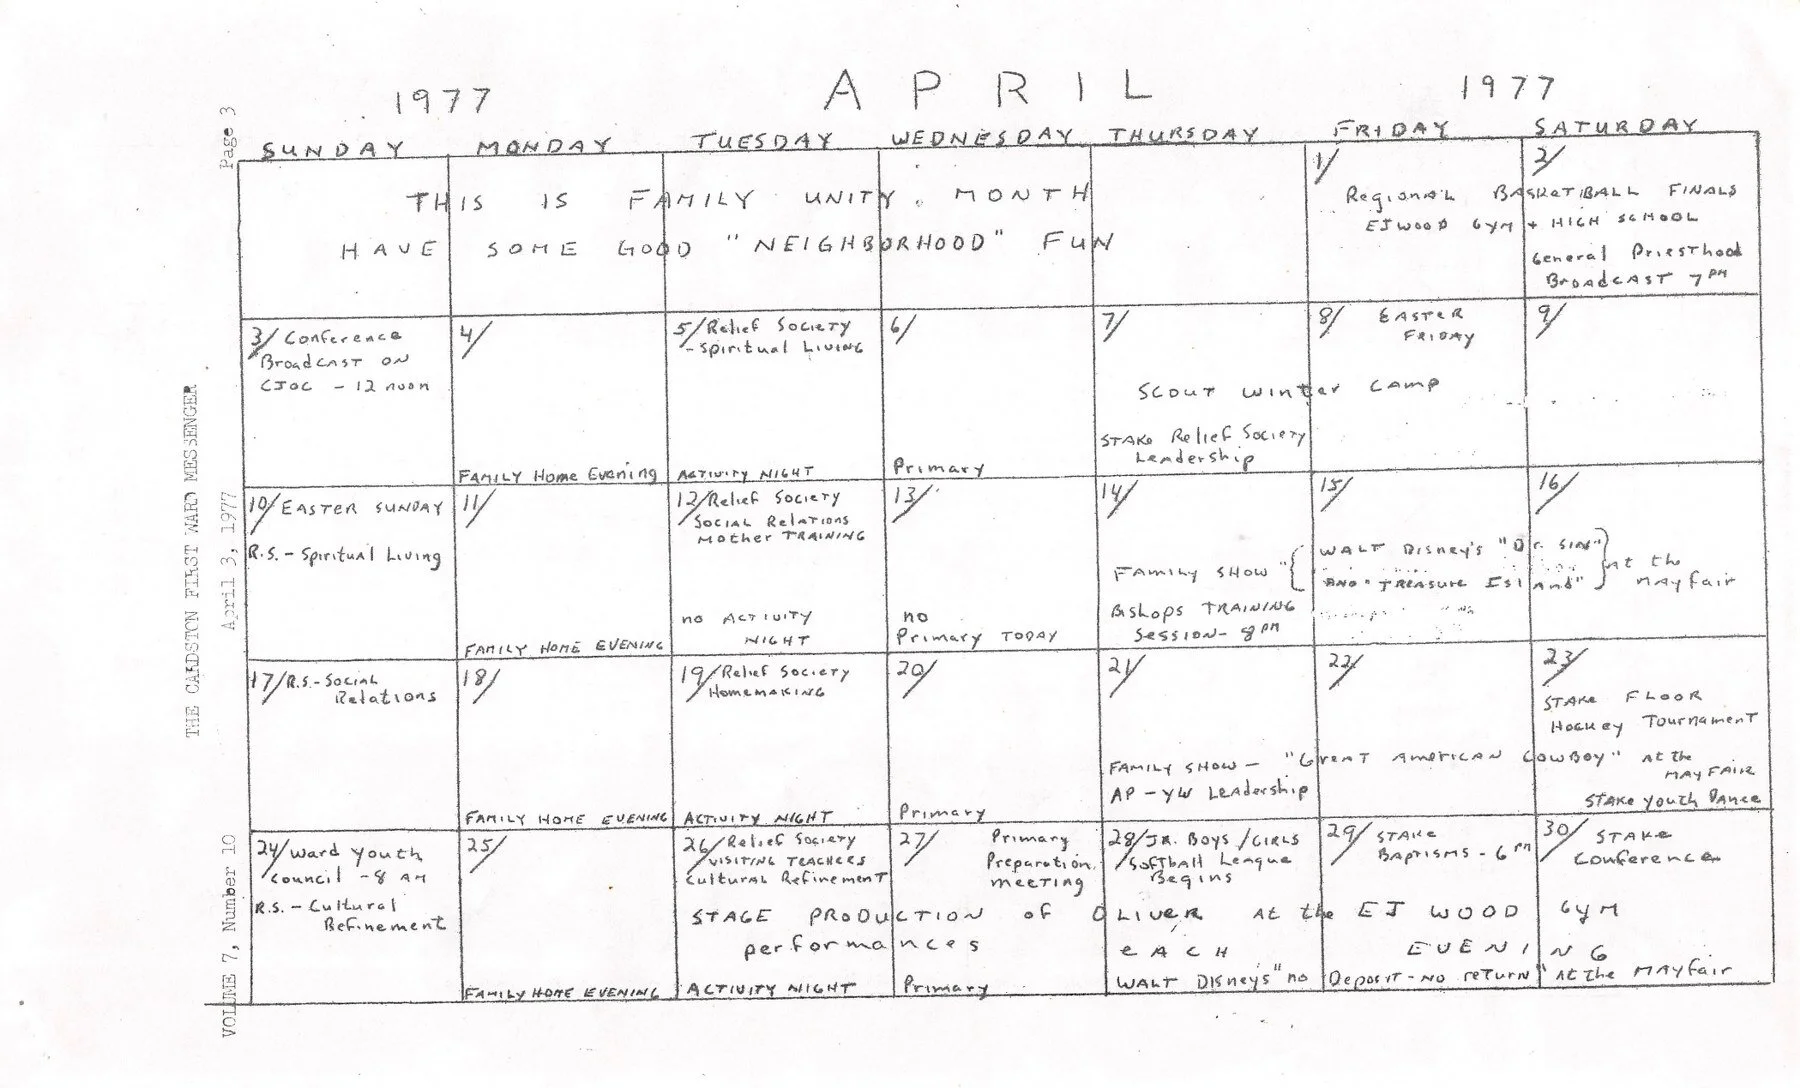 1977 APRIL 1977
SUNDAY MONDAY TUESDAY WEDNESDAY THURSDAY FRIDAY SATURDAY
THIS IS FAMILY UNITY MONTH
HAVE SOME GOOD "NEIGHBORHOOD" FUN
1/
2/
Regional BASKETBALL FINALS
EJ WOOD GYM + HIGH SCHOOL
General Priesthood
BroadCAST 7 PM
3/ Conference
BroadCAST ON
CJOC - 12 noon
4/
FAMILY Home Evening
5/ Relief Society
- Spiritual LIVING
ACTIVITY NIGHT
6/
Primary
7/
8/ EASTER
FRIDAY
9/
SCOUT Winter CAMP
STAKE Relief Society
Leadership
10/ EASTER SUNDAY
R.S. - Spiritual Living
11/
FAMILY HOME EVENING
12/ Relief Society
SOCIAL Relations
Mother TRAINING
no ACTIVITY
NIGHT
13/
no
Primary TODAY
14/
15/
16/
WALT Disney's "Dr. SIN"
FAMILY SHOW " at the
AND "TREASURE ISland" MAYfair
Bishops TRAINING
SESSION - 8 PM
17/ R.S. - SOCIAL
Relations
18/
FAMILY HOME EVENING
19/ Relief Society
HomeMAKING
ACTIVITY NIGHT
20/
Primary
21/
22/
23/
STAKE FLOOR
Hockey Tournament
FAMILY SHOW - "Great AMERICAN COWBOY" AT the
MAYFAIR
AP - YW Leadership
STAKE Youth Dance
24/ Ward Youth
Council - 8 AM
R.S. - Cultural
Refinement
25/
FAMILY HOME EVENING
26/ Relief Society
VISITING TEACHERS
Cultural Refinement
ACTIVITY NIGHT
27/ Primary
Preparation
meeting
Primary
28/ JR. BOYS / GIRLS
Softball League
Begins
29/ STAKE
BAPTISMS - 6 PM
30/ STAKE
Conference
STAGE PRODUCTION of OLIVER At the EJ WOOD GYM
performances EACH EVENING
WALT Disney's "no Deposit - NO return" AT the MAYfair
Page 3
THE CARDSTON FIRST WARD MESSENGER
April 3, 1977
VOLUME 7, Number 10